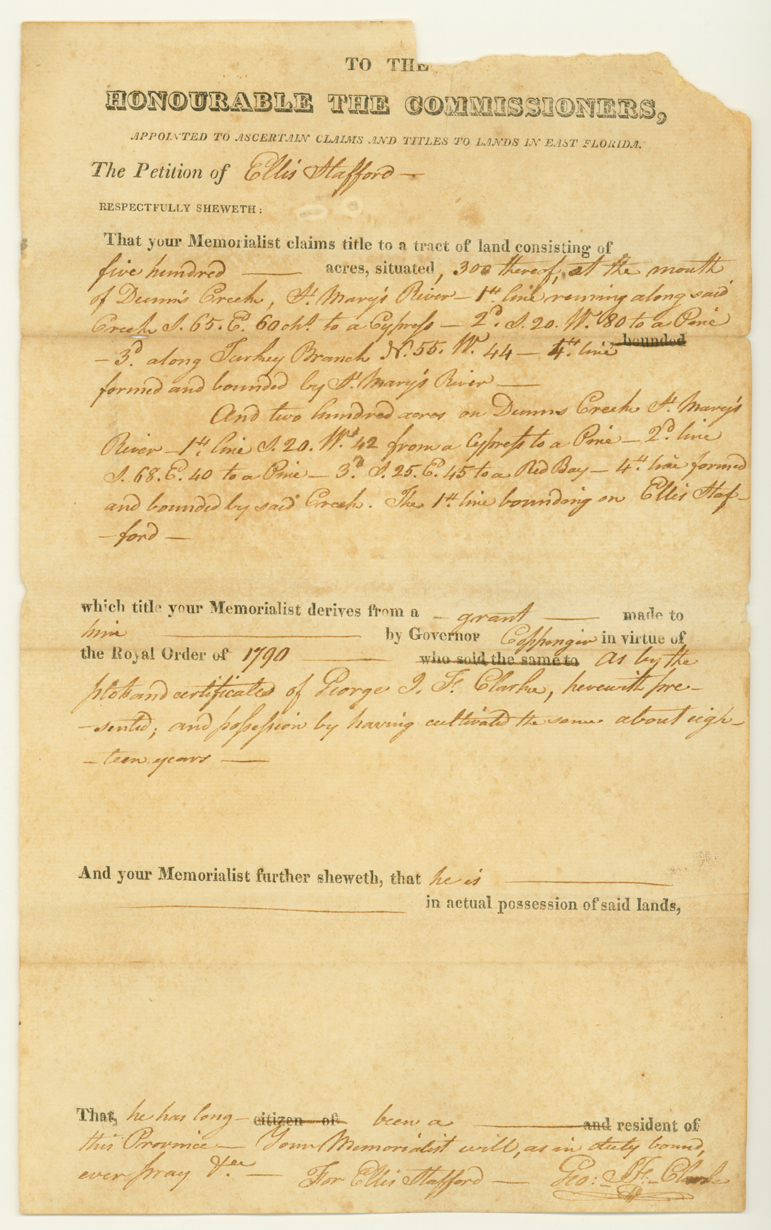 TO THE
HONOURABLE THE COMMISSIONERS,
APPOINTED TO ASCERTAIN CLAIMS AND TITLES TO LANDS IN EAST FLORIDA.
The Petition of Ellis Stafford —
RESPECTFULLY SHEWETH:
That your Memorialist claims title to a tract of land consisting of
five hundred —— acres, situated, 300 thereof, at the mouth
of Dunn's Creek, St. Mary's River — 1st. line running along said
Creek S. 65. E. 60 chs. to a Cypress — 2d. S. 20. W. 80 to a Pine
— 3d. along Turkey Branch N. 55. W. 44 — 4th. line bounded
formed and bounded by St. Mary's River ——
And two hundred acres on Dunns Creek St. Mary's
River — 1st. line S. 20. Wd. 42 from a Cypress to a Pine — 2d. line
S. 68. E. 40 to a Pine — 3d. S. 25. E. 45 to a Red Bay — 4th. line formed
and bounded by said Creek. The 1st. line bounding on Ellis Staf-
-ford —
which title your Memorialist derives from a — grant —— made to
him —— by Governor Coppinger in virtue of
the Royal Order of 1790 —— who sold the same to As by the
plot and certificates of George J. F. Clarke, herewith pre-
-sented; and possession by having cultivated the same about eigh-
-teen years ——
And your Memorialist further sheweth, that he is ——
—— in actual possession of said lands,
That, he has long — citizen of been a —— and resident of
this Province — Your Memorialist will, as in duty bound,
ever pray &ca — For Ellis Stafford — Geo: J. F. Clarke